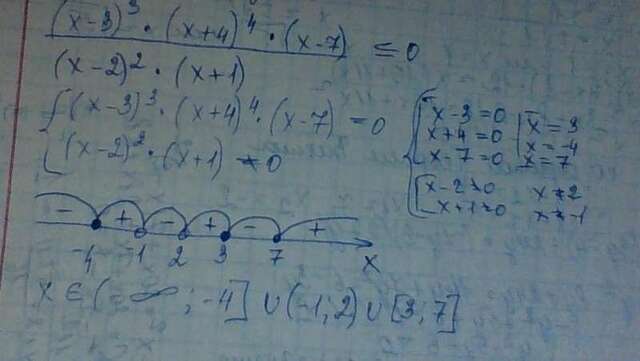 (x-3)³ · (x+4)⁴ · (x-7) / (x-2)² · (x+1) ≤ 0
{ (x-3)³ · (x+4)⁴ · (x-7) = 0
(x-2)² · (x+1) ≠ 0
{ [ x-3=0 [ x=3
x+4=0 x=-4
x-7=0 x=7
[ x-2≠0 x≠2
x+1≠0 x≠-1
- + - + - +
-4 -1 2 3 7 x
x ∈ (-∞; -4] ∪ (-1; 2) ∪ [3; 7]